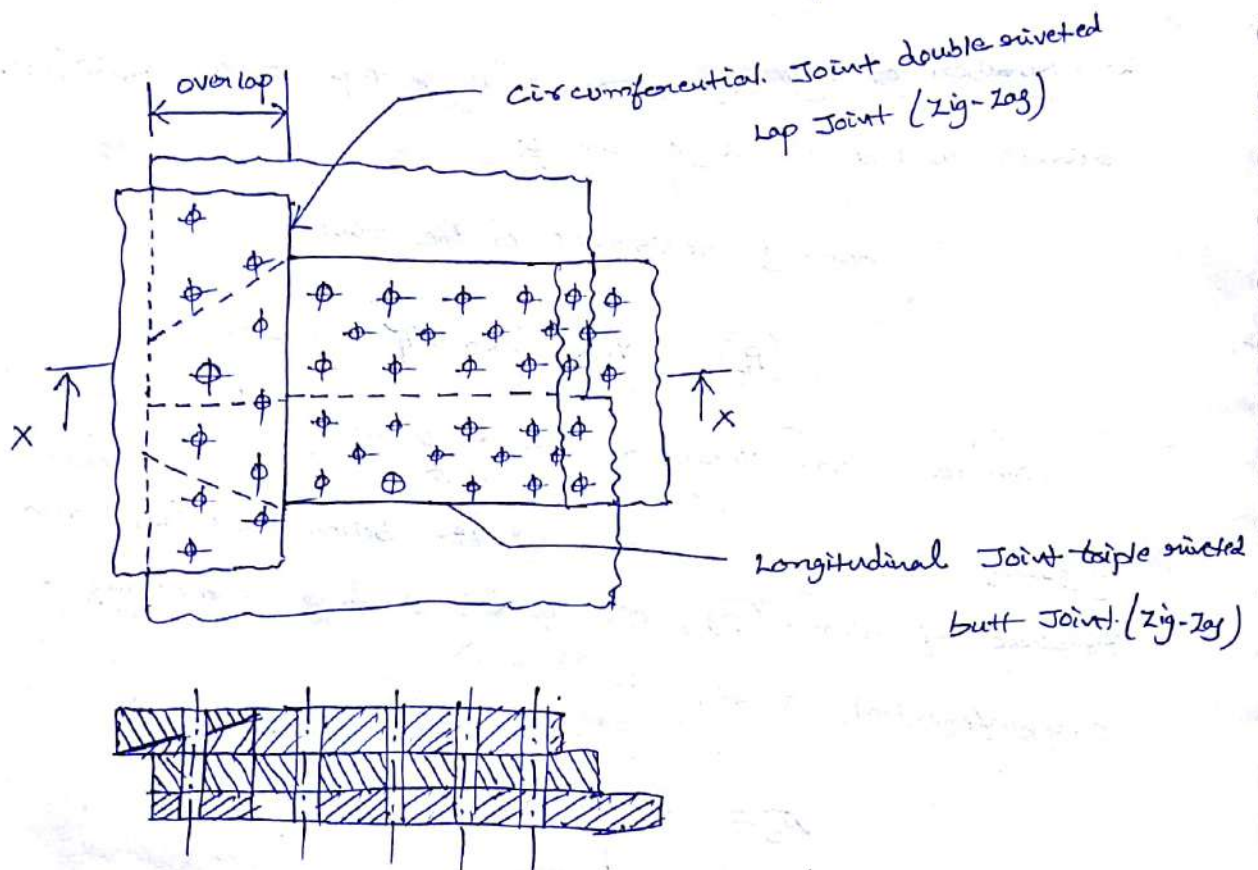 overlap
Circumferential. Joint double riveted
Lap Joint (Zig-Zag)
X
X
Longitudinal Joint triple riveted
butt Joint. (Zig-Zag)